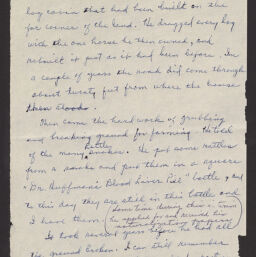 log cabin that had been built on the
far corner of the land. He dragged every log
with the one horse he then owned, and
rebuilt it just as it had been before. In
a couple of years the road did come through
about twenty feet from where the house
then stood.
Then came the hard work of grubbing
and breaking ground for farming. He told
of the many Rattle snakes. He got some rattles
from a snake and put them in a square
"Dr. Hoffman's Blood Liver Pill" bottle, and
to this day they are still in this bottle and
I have them. some time during this is when
he applied for and received his
naturalization papers
It took several years before he had all
the ground broken. I can still remember